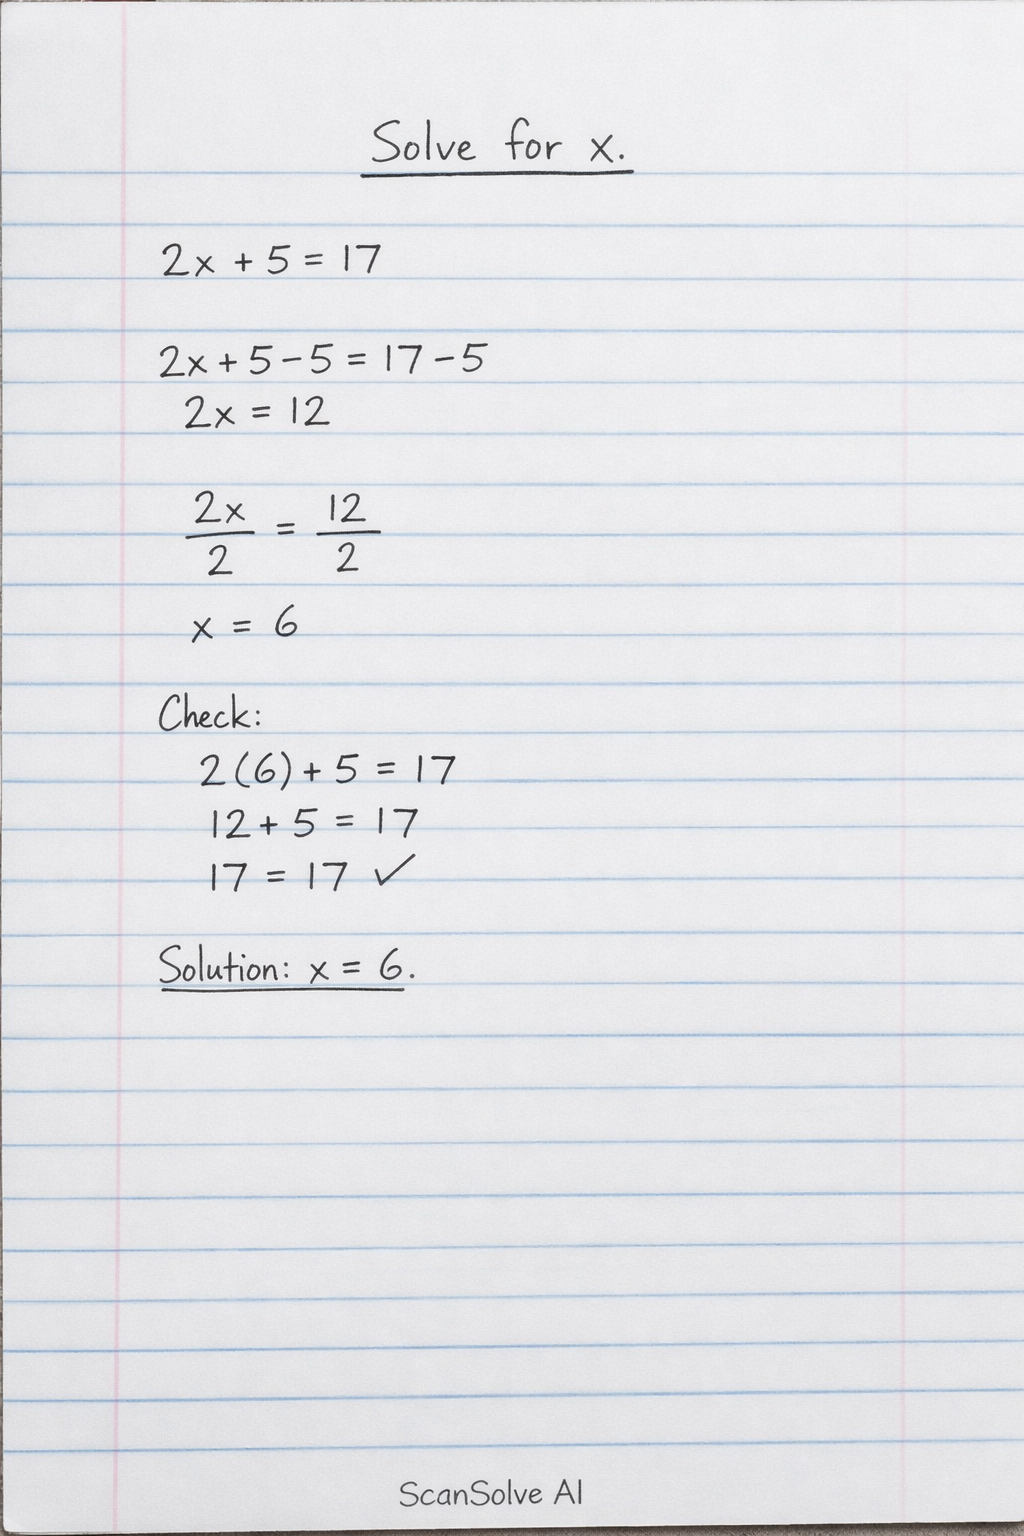 Solve for x.
2x + 5 = 17
2x + 5 - 5 = 17 - 5
2x = 12
2x/2 = 12/2
x = 6
Check:
2(6) + 5 = 17
12 + 5 = 17
17 = 17 ✓
Solution: x = 6.
ScanSolve AI